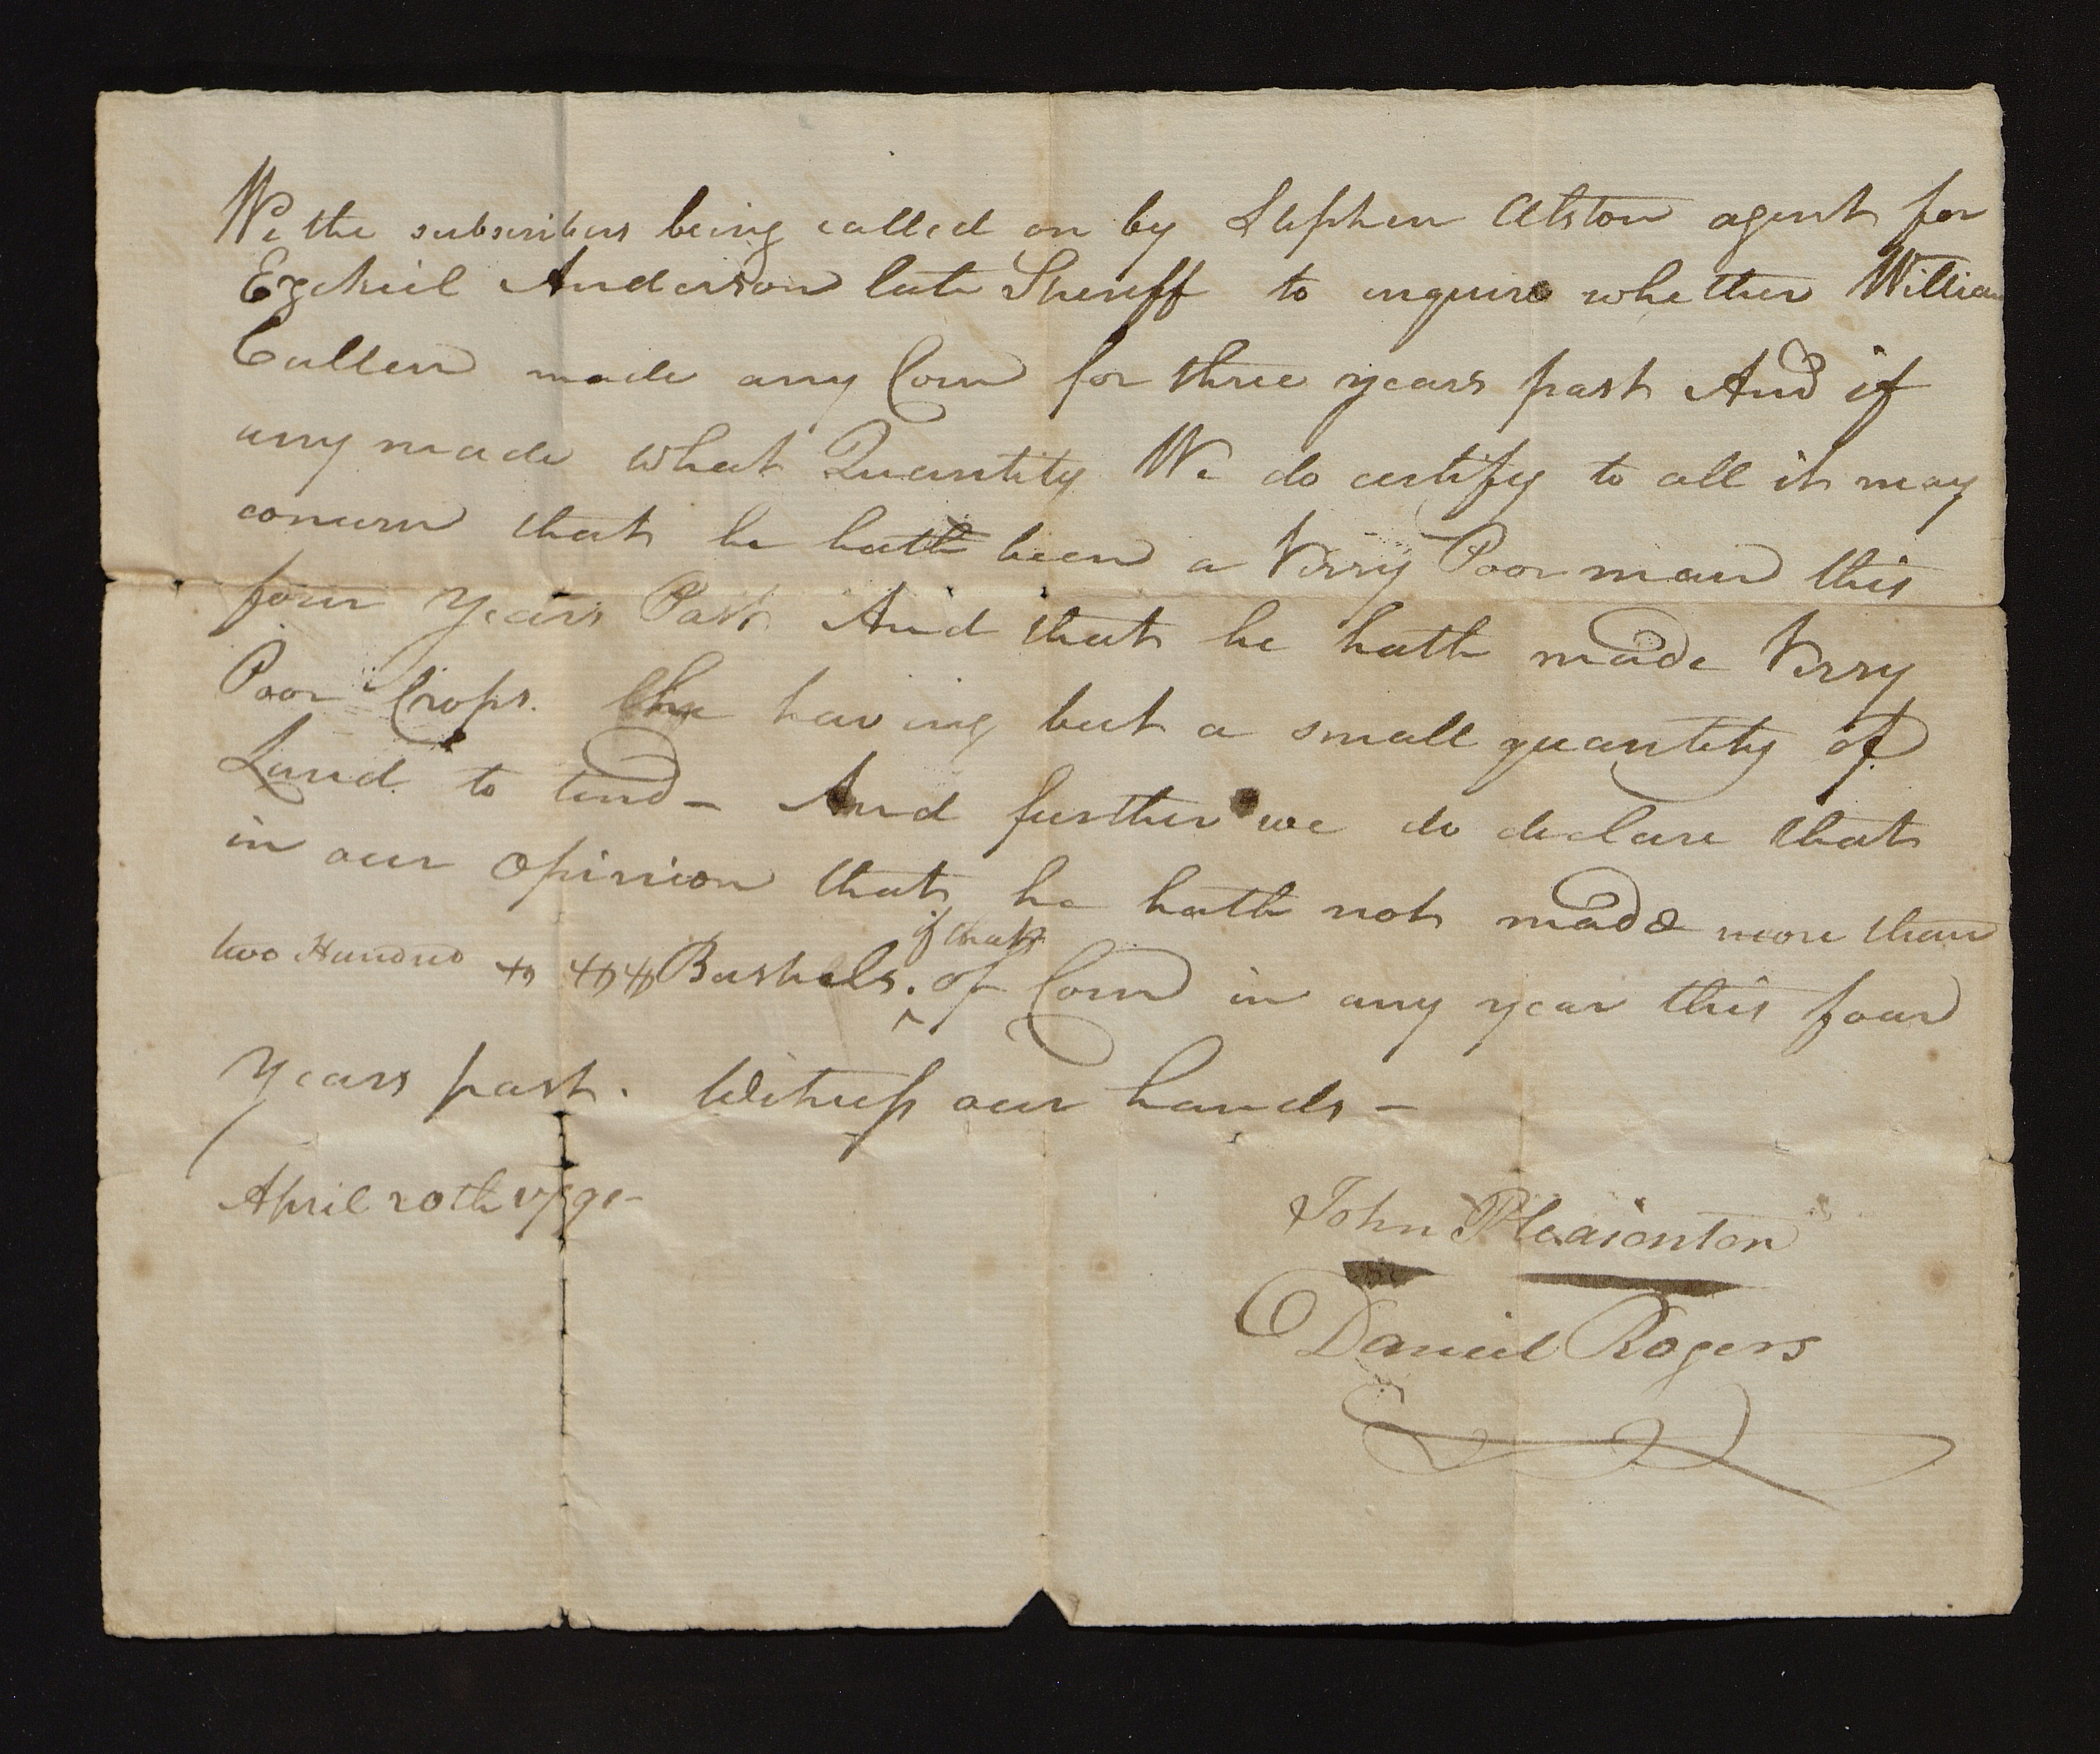 We the subscribers being called on by Stephen Alston agent for
Ezekiel Anderson late Sheriff to inquire whether William
Cullen made any Corn for three years past And if
any made what Quantity We do certify to all it may
concern that he hath been a Verry Poor man this
four Years Past And that he hath made Verry
Poor Crops. he having but a small quantity of
Land to tend - And further we do declare that
in our opinion that he hath not made more than
if that
two Hundred Bushels. of Corn in any year this four
Years past. Witness our hands -
April 20th
John Pleasonton
Daniel Rogers